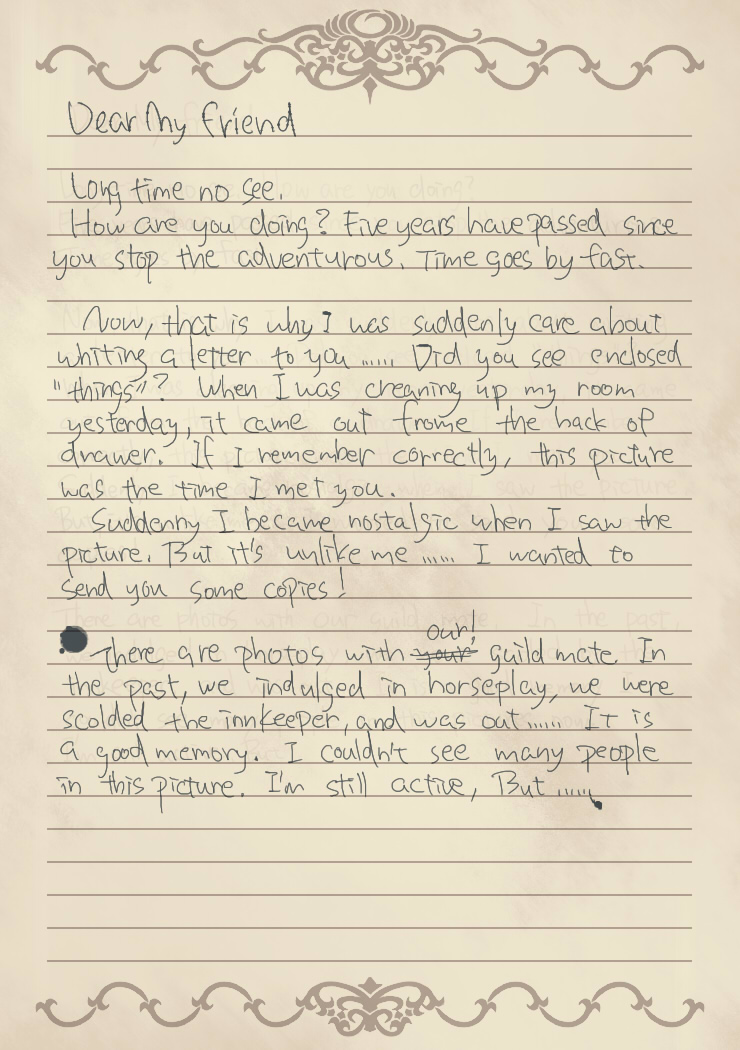 Dear My friend
Long time no see.
How are you doing? Five years have passed since
you stop the adventurous. Time goes by fast.
Now, that is why I was suddenly care about
whiting a letter to you ...... Did you see enclosed
"things"? When I was creaning up my room
yesterday, it came out frome the back of
drawer. If I remember correctly, this picture
was the time I met you.
Suddenny I became nostalgic when I saw the
picture. But it's unlike me ...... I wanted to
send you some copies!
our!
There are photos with your guild mate. In
the past, we indulged in horseplay, we were
scolded the innkeeper, and was out...... It is
a good memory. I couldn't see many people
in this picture. I'm still active, But ......